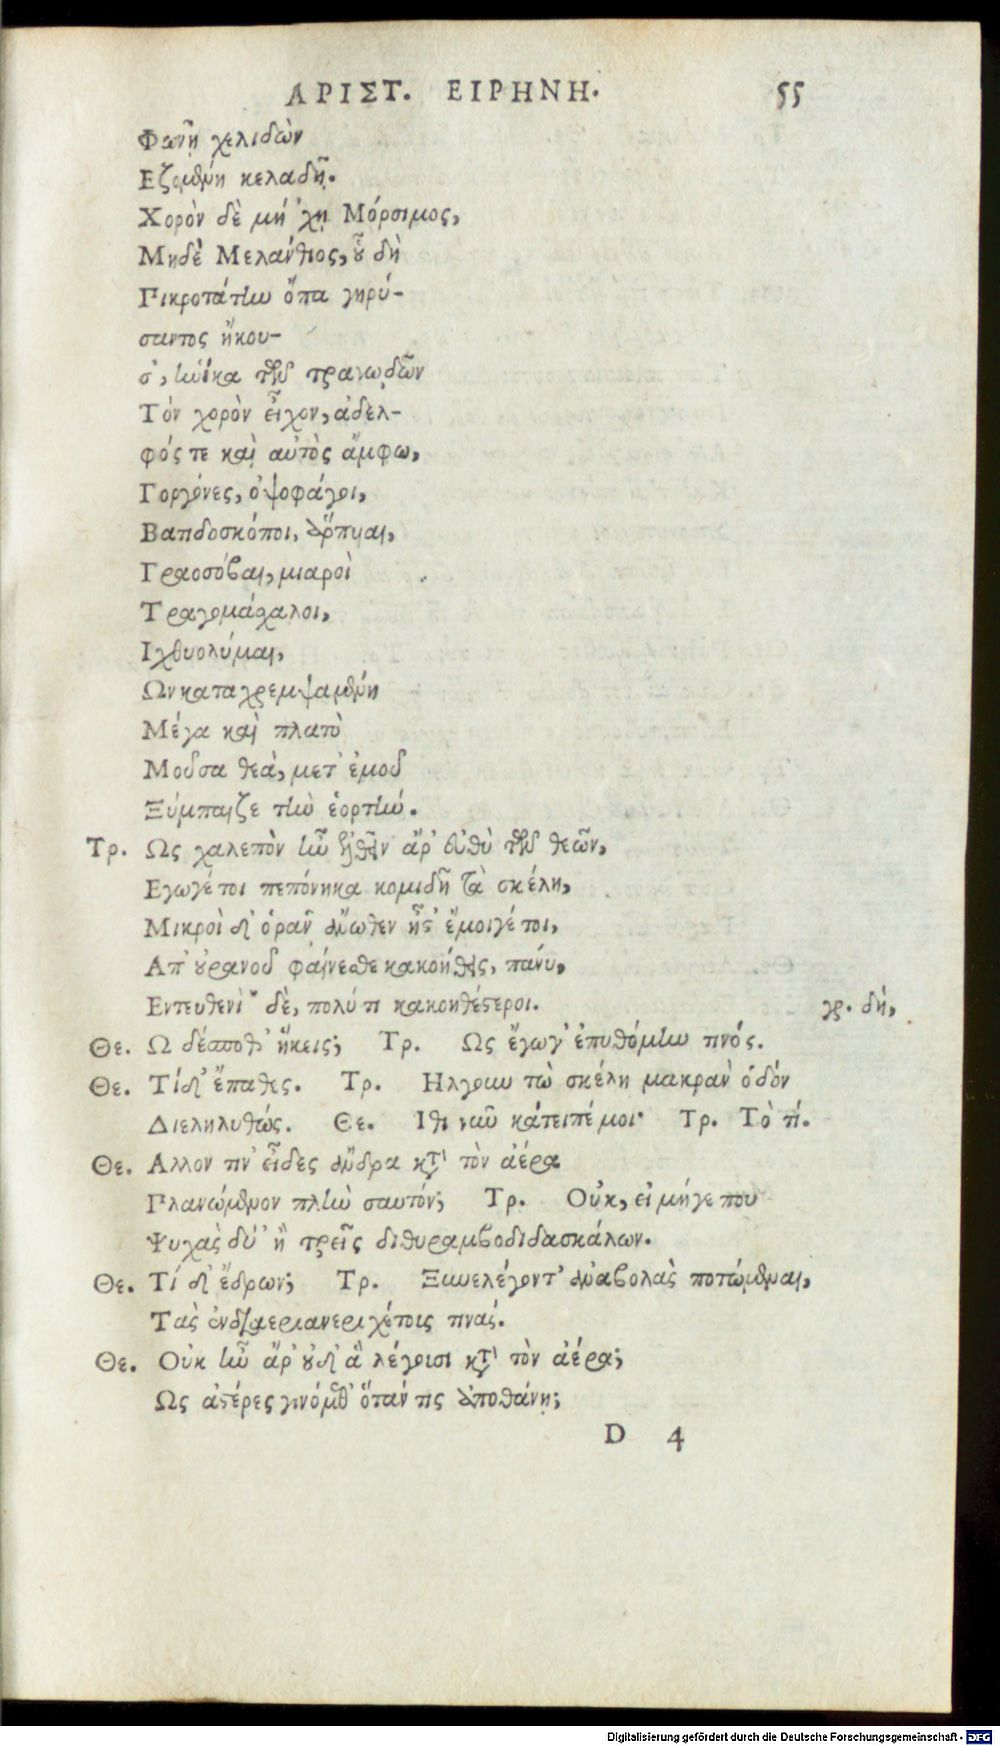 ΑΡΙΣΤ. ΕΙΡΗΝΗ. 55
Φωνῇ χελιδὼν
Εζομένη κελαδῇ.
Χορὸν δὲ μή ’χῃ Μόρσιμος,
Μηδὲ Μελάνθιος, οὗ δὴ
Πικροτάτην ὄπα γηρύ-
σαντος ἤκου-
σ’, ἡνίκα τῶν τραγῳδῶν
Τὸν χορὸν εἶχον, ἀδελ-
φός τε καὶ αὐτὸς ἄμφω,
Γοργόνες, ὀψοφάγοι,
Βατιδοσκόποι, ἅρπυιαι,
Γραοσόβαι, μιαροὶ
Τραγομάσχαλοι,
Ιχθυολύμαι,
Ων καταχρεμψαμένη
Μέγα καὶ πλατὺ
Μοῦσα θεὰ, μετ’ ἐμοῦ
Ξύμπαιζε τὴν ἑορτήν.
Τρ. Ως χαλεπὸν ἦν ἐλθεῖν ἄρ’ εὐθὺ τῶν θεῶν,
Εγωγέ τοι πεπόνηκα κομιδῇ τὰ σκέλη,
Μικροὶ δ’ ὁρᾷν ἄνωθεν ἦστ’ ἔμοιγέ τοι,
Απ’ οὐρανοῦ φαίνεσθε κακοήθεις, πάνυ,
Εντευθενὶ* δὲ, πολύ τι κακοηθέστεροι. γρ. δή,
Θε. Ω δέσποθ’ ἥκεις; Τρ. Ως ἔγωγ’ ἐπυθόμην τινός.
Θε. Τί δ’ ἔπαθες. Τρ. Ηλγουν τὼ σκέλη μακρὰν ὁδὸν
Διεληλυθώς. Θε. Ιθι νῦν κάτειπέ μοι· Τρ. Τὸ τί.
Θε. Αλλον τιν’ εἶδες ἄνδρα κατ τὸν ἀέρα
Πλανώμενον πλὴν σαυτόν; Τρ. Οὐκ, εἰ μή γε που
Ψυχὰς δύ’ ἢ τρεῖς διθυραμβοδιδασκάλων.
Θε. Τί δ’ ἔδρων; Τρ. Ξυνελέγοντ’ ἀναβολὰς ποτώμεναι,
Τὰς ἐνδιαεριανεριχέτοις τινάς.
Θε. Οὐκ ἦν ἄρ’ οὐδ’ ἃ λέγουσι κατ τὸν ἀέρα;
Ως ἀστέρες γινόμεθ’ ὅταν τις ἀποθάνῃ;
D 4
Digitalisierung gefördert durch die Deutsche Forschungsgemeinschaft - DFG